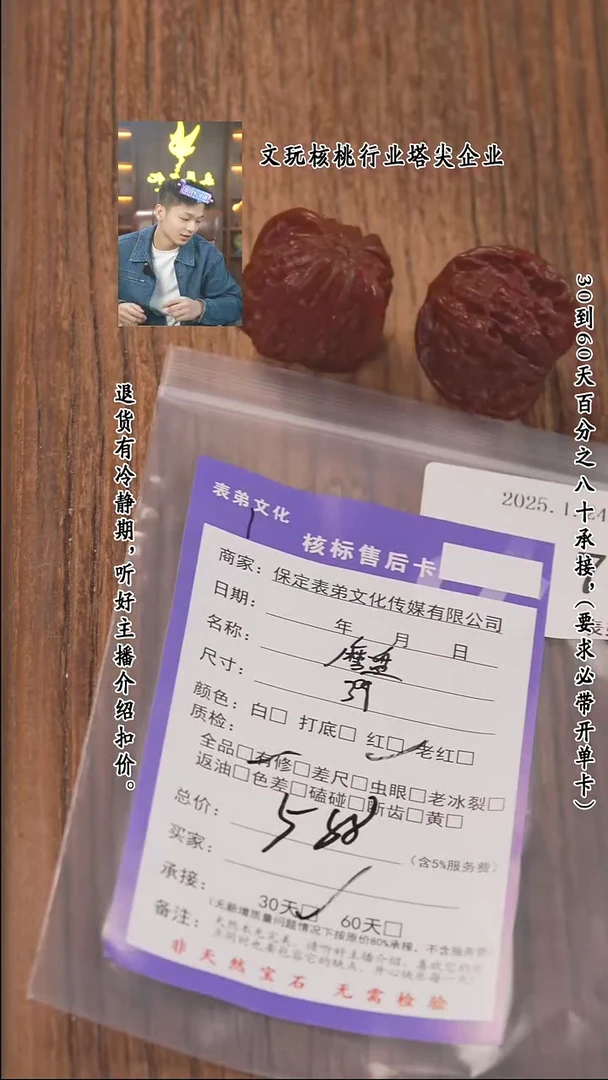 文玩核桃行业塔尖企业
30到60天百分之八十承接,(要求必带开单卡)
退货有冷静期,听好主播介绍扣价。
2025.1
表弟文化
核标售后卡
商家：保定表弟文化传媒有限公司
日期： 年 月 日
名称： 磨盘
尺寸： 39
颜色：白□ 打底□ 红□ 老红□
质检：
全品□有修□差尺□虫眼□老冰裂□
返油□色差□磕碰□断齿□黄□
总价： 588
(含5%服务费)
买家：
承接： 30天□ 60天□
(无新增质量问题情况下按原价80%承接，不含服务费)
备注：天然本无完美，请听好主播介绍，喜欢它的
同时也要包容它的缺点，开心快乐每一天！
非天然宝石 无需检验